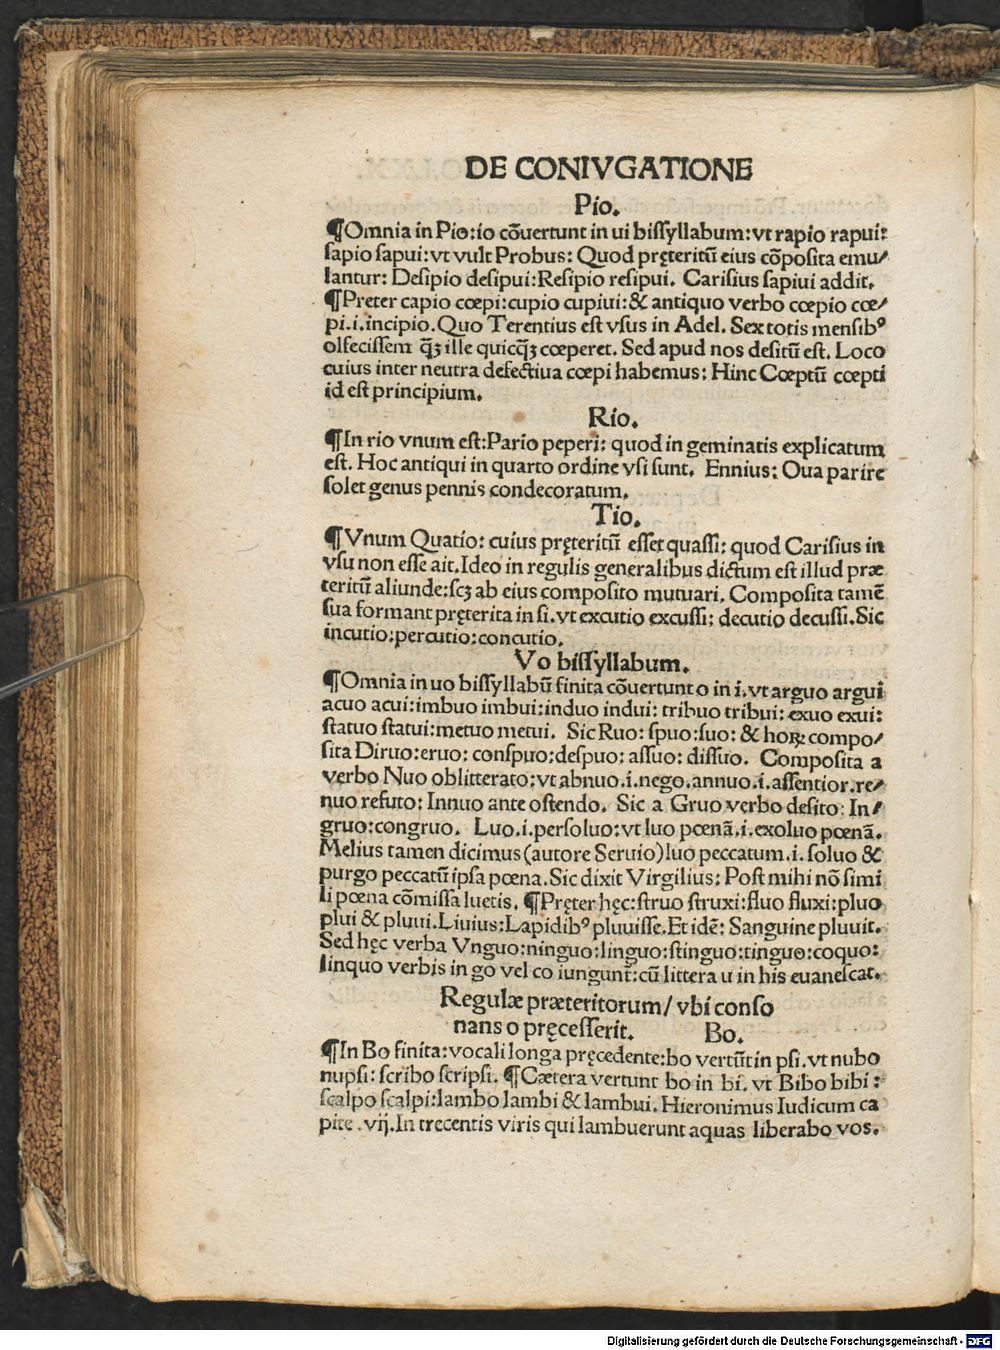 DE CONIVGATIONE
Pio.
¶Omnia in Pio:io cōuertunt in ui bissyllabum:vt rapio rapui:
sapio sapui:vt vult Probus: Quod pręteritū eius cōposita emu/
lantur: Desipio desipui:Resipio resipui. Carisius sapiui addit.
¶Preter capio cœpi:cupio cupiui:& antiquo verbo cœpio cœ/
pi.i.incipio.Quo Terentius est vsus in Adel. Sex totis mensibꝰ
olfecissem q̄ꝫ ille quicq̄ꝫ cœperet. Sed apud nos desitū est. Loco
cuius inter neutra defectiua cœpi habemus: Hinc Cœptū cœpti
id est principium.
Rio.
¶In rio vnum est:Pario peperi: quod in geminatis explicatum
est. Hoc antiqui in quarto ordine vsi sunt. Ennius: Oua parire
solet genus pennis condecoratum.
Tio.
¶Vnum Quatio: cuius pręteritū esset quassi: quod Carisius in
vsu non esse ait.Ideo in regulis generalibus dictum est illud præ
teritū aliunde:scꝫ ab eius composito mutuari. Composita tamē
sua formant pręterita in si.vt excutio excussi: decutio decussi.Sic
incutio:percutio:concutio.
Vo bissyllabum.
¶Omnia in uo bissyllabū finita cōuertunt o in i.vt arguo argui
acuo acui:imbuo imbui:induo indui: tribuo tribui: exuo exui:
statuo statui:metuo metui. Sic Ruo: spuo:suo: & hoꝝ compo/
sita Diruo:eruo: conspuo:despuo: assuo: dissuo. Composita a
verbo Nuo oblitterato:vt abnuo.i.nego.annuo.i.assentior.re/
nuo refuto: Innuo ante ostendo. Sic a Gruo verbo desito: In/
gruo:congruo. Luo.i.persoluo:vt luo pœnā.i.exoluo pœnā.
Melius tamen dicimus(autore Seruio)luo peccatum.i.soluo &
purgo peccatū ipsa pœna.Sic dixit Virgilius: Post mihi nō simi
li pœna cōmissa luetis. ¶Pręter hęc:struo struxi:fluo fluxi:pluo
plui & pluui.Liuius:Lapidibꝰ pluuisse.Et idē: Sanguine pluuit.
Sed hęc verba Vnguo:ninguo:linguo:stinguo:tinguo:coquo:
linquo verbis in go vel co iungunt̄:cū littera u in his euanescat.
Regulæ præteritorum/ vbi conso
nans o pręcesserit. Bo.
¶In Bo finita:vocali longa pręcedente:bo vertūt in psi.vt nubo
nupsi: scribo scripsi. ¶Cætera vertunt bo in bi. vt Bibo bibi :
scalpo scalpi:lambo lambi & lambui. Hieronimus Iudicum ca
pite .vij.In trecentis viris qui lambuerunt aquas liberabo vos.
Digitalisierung gefördert durch die Deutsche Forschungsgemeinschaft - DFG